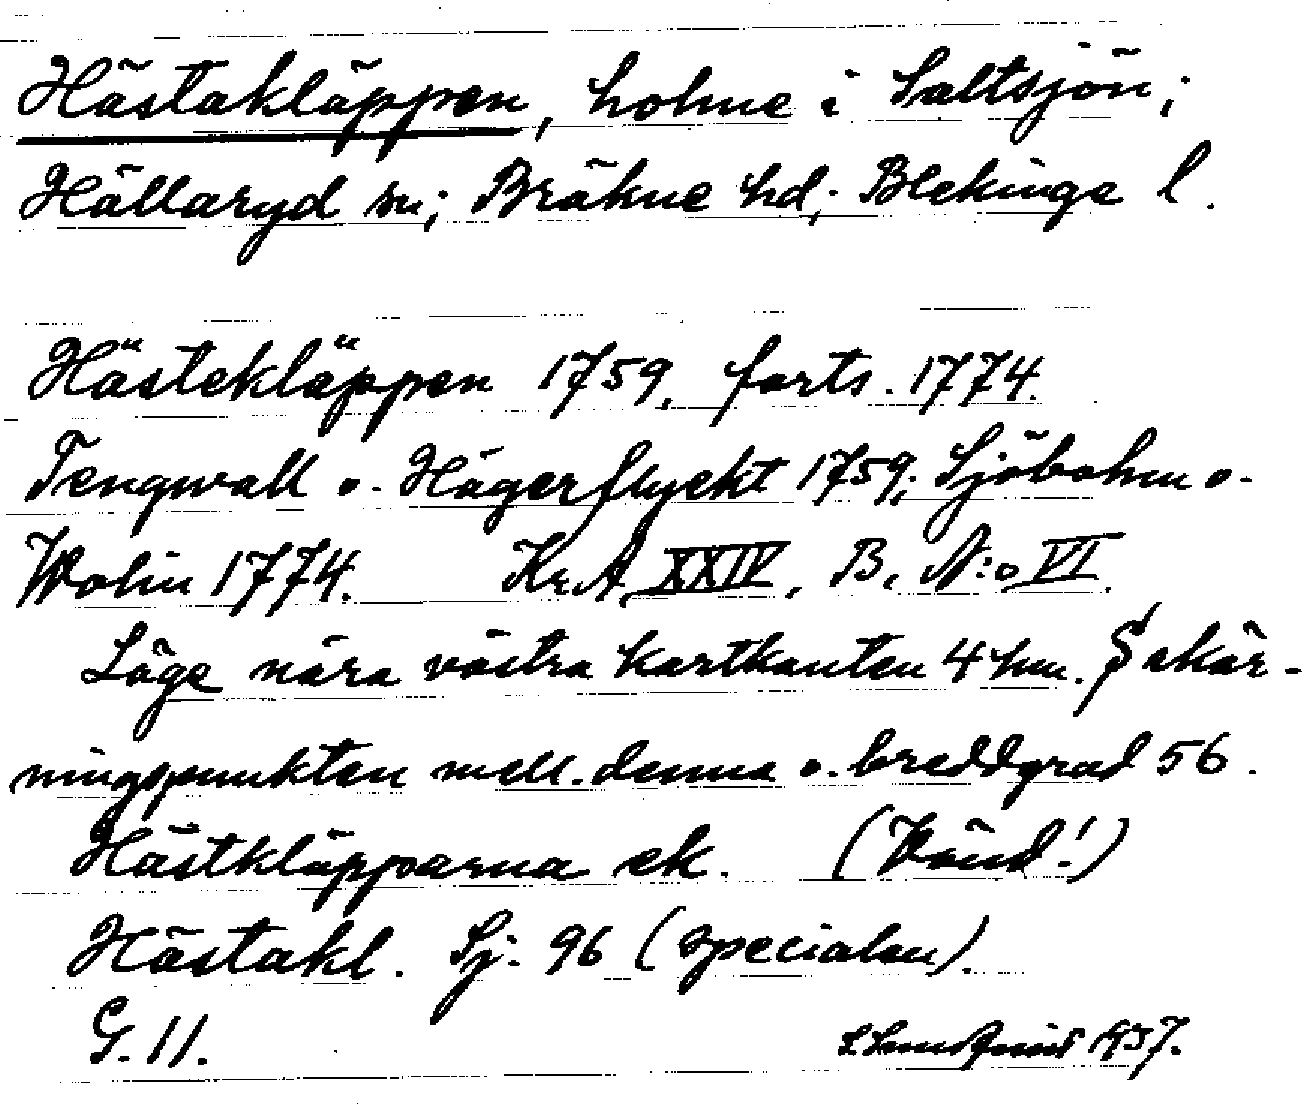 Hästakläppen, holme i Saltsjön;
Hällaryd sn; Bräkne hd; Blekinge l.
Hästekläppen 1759, forts. 1774.
Tengwall o. Hägerflyckt 1759; Sjöbohm o.
Wohin 1774. Kr.A. XXIV, B, N:o VI.
Läge nära västra kartkanten 4 hm. S skär-
ningspunkten mell. denna o. breddgrad 56.
Hästkläpparna ek. (Vänd!)
Hästakl. Sj. 96 (specialen).
G. 11. 1937.